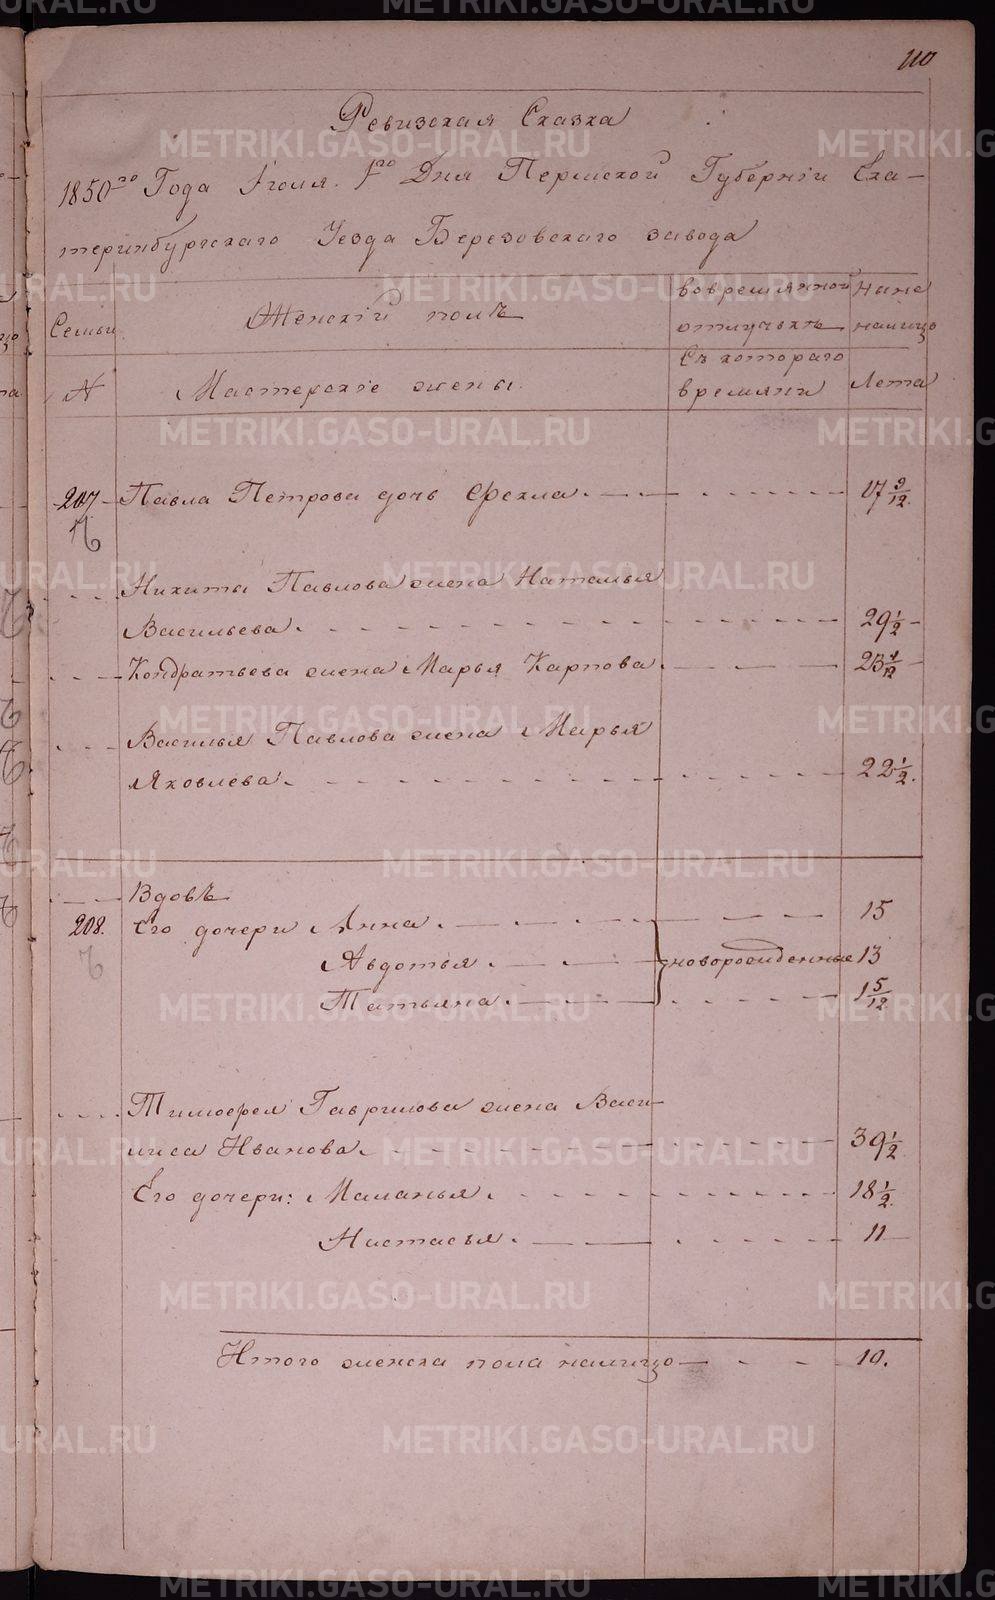 110
Ревизская Сказка
1850го Года Іюля 1го Дня Пермской Губерніи Ека-
теринбургскаго Уезда Березовскаго завода
Семьи
Женскій полъ
вовремянной отлучькѣ
ныне налицо
N
Мастерскіе жены.
Съ котораго времяни
Лета
207 Павла Петрова дочь Фекла. 17 9/12.
Никиты Павлова жена Наталья
Васильева. 29 1/2
Кондратьева жена Марья Карпова. 23 4/12
Василья Павлова жена Марья
Яковлева. 22 1/2.
Вдовѣ
208. Его дочери Анна. 15
Авдотья. новорожденные 13
Татьяна. 1 5/12
Тимофея Гаврилова жена Васи-
лиса Иванова. 39 1/2
Его дочери: Маланья. 18 1/2.
Настасья. 11
Итого женска пола налицо 10.
METRIKI.GASO-URAL.RU